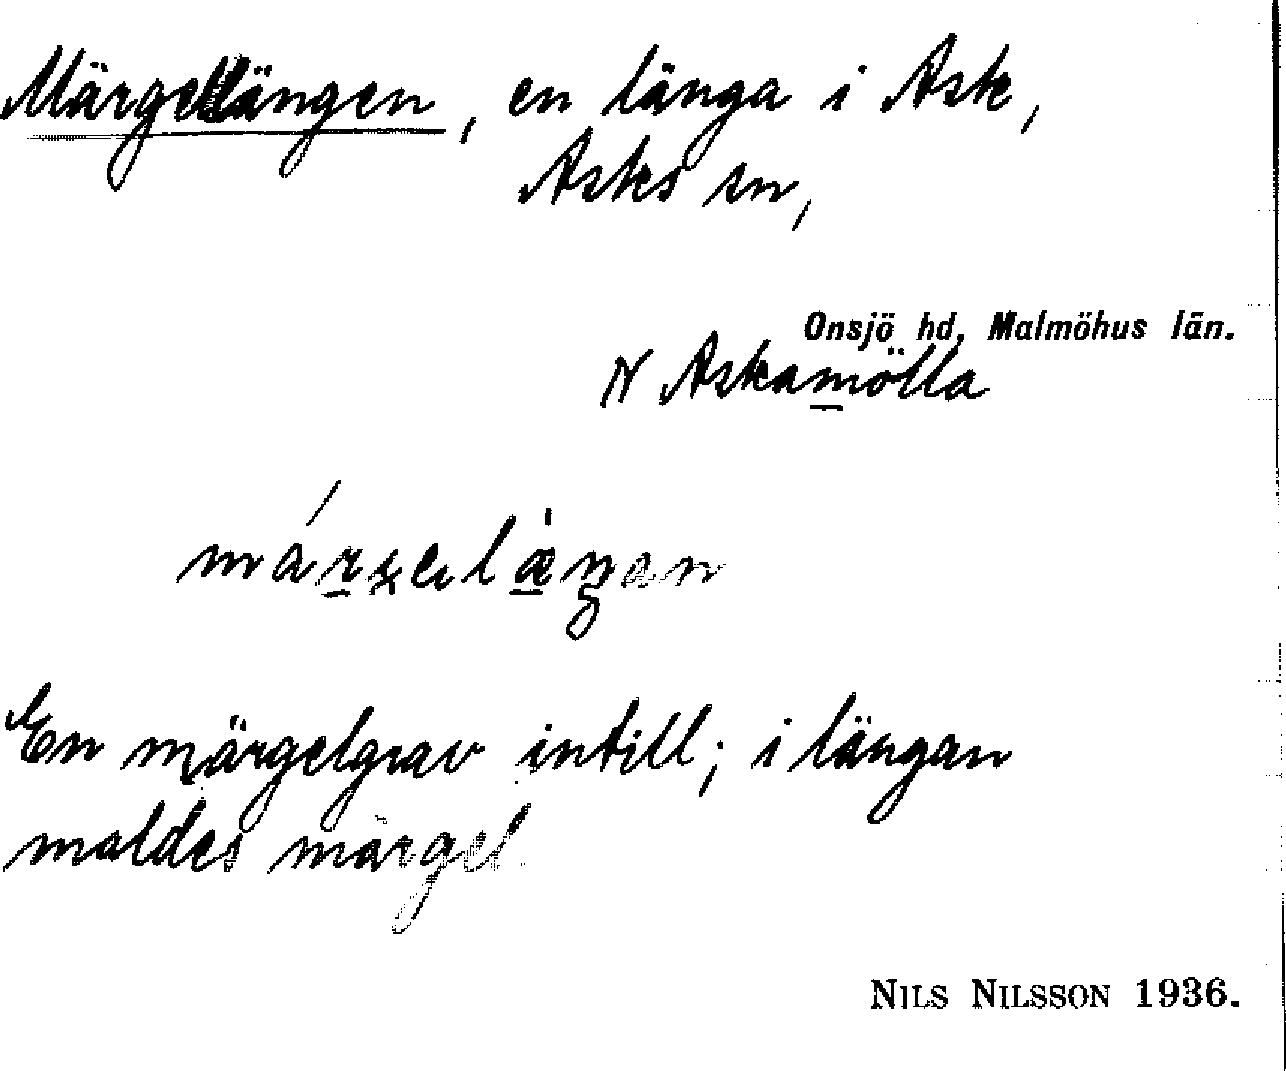 Märgellängen, en länga i Ask,
Asks sn,
Onsjö hd, Malmöhus län.
N Askamölla
En märgelgrav intill; i längan
maldes märgel.
NILS NILSSON 1936.